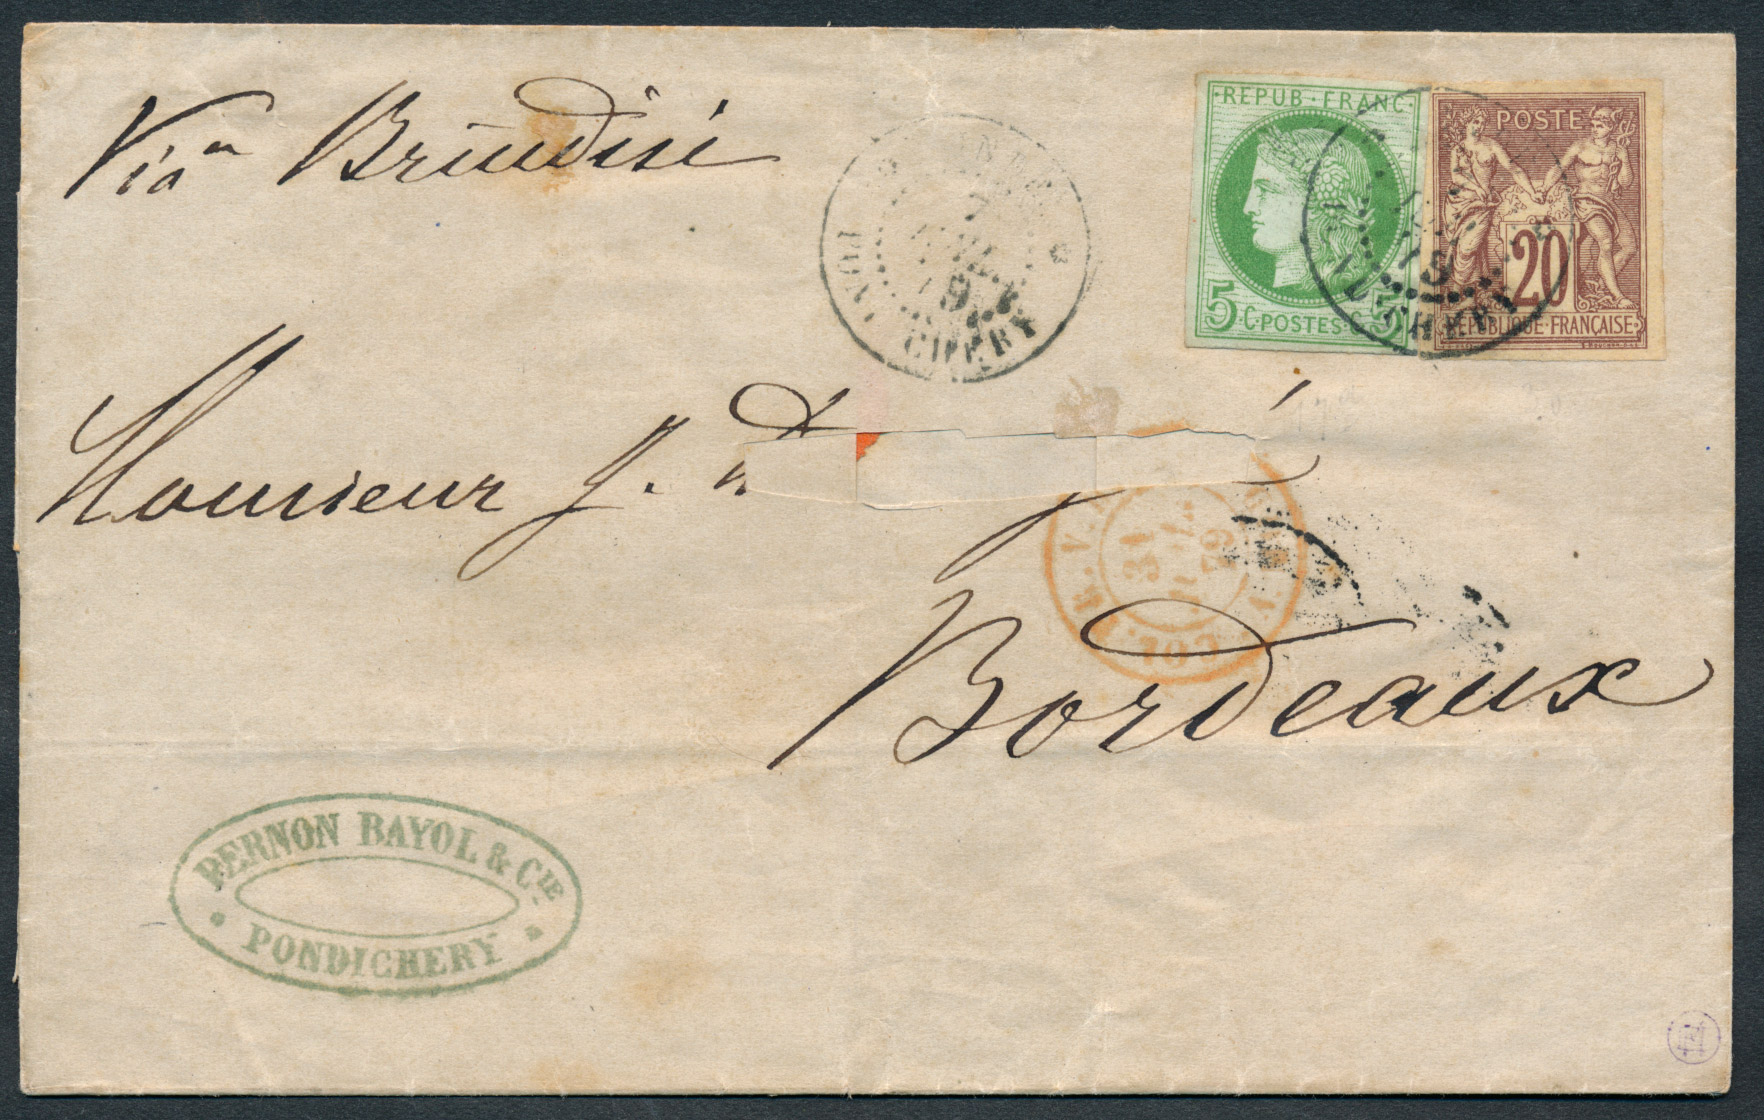 Via Brindisi
REPUB · FRANC
5 · C · POSTES · C · 5
POSTE
20
REPUBLIQUE FRANÇAISE
PONDICHERY
7
79
PONDICHERY
79
Monsieur J.
COL.
31
79
Bordeaux
PERNON BAYOL & CIE
PONDICHERY